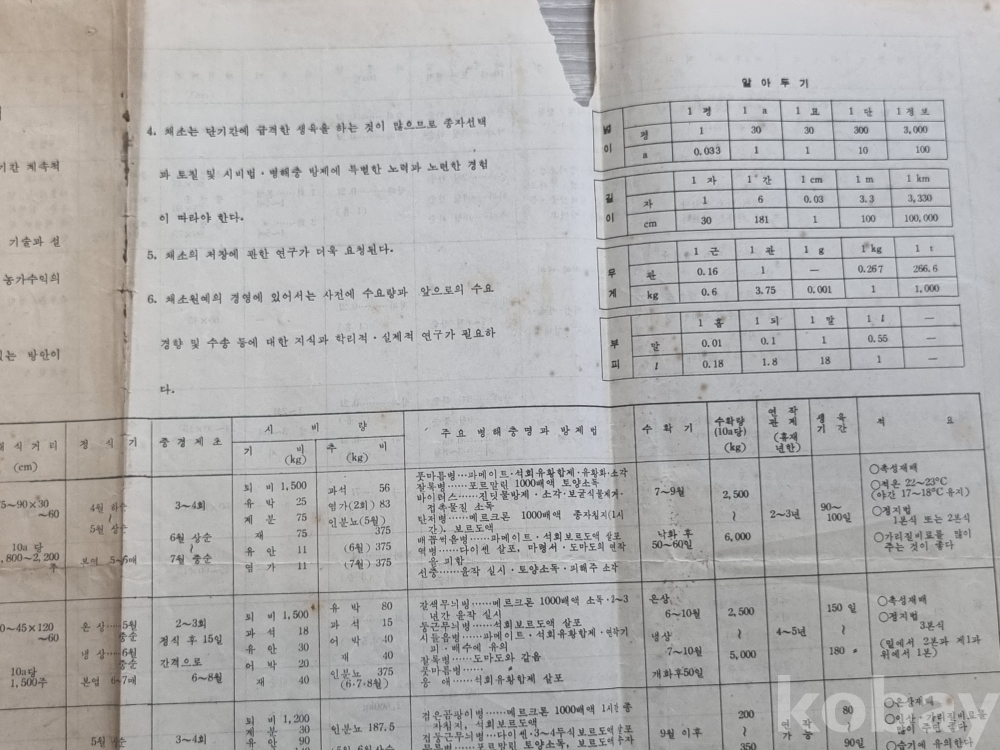 알 아 두 기
4. 채소는 단기간에 급격한 생육을 하는 것이 많으므로 종자선택
과 토질 및 시비법·병해충 방제에 특별한 노력과 노련한 경험
이 따라야 한다.
5. 채소의 저장에 관한 연구가 더욱 요청된다.
6. 채소원예의 경영에 있어서는 사전에 수요량과 앞으로의 수요
경향 및 수송 등에 대한 지식과 학리적·실제적 연구가 필요하
다.
기간 계속적
기술과 설
농가수익의
있는 방안이
넓이 1 평 1 a 1 묘 1 단 1 정 보
평 1 30 30 300 3,000
a 0.033 1 1 10 100
길이 1 자 1 간 1 cm 1 m 1 km
자 1 6 0.03 3.3 3,330
cm 30 181 1 100 100,000
무게 1 근 1 관 1 g 1 kg 1 t
관 0.16 1 — 0.267 266.6
kg 0.6 3.75 0.001 1 1,000
부피 1 홉 1 되 1 말 1 l —
말 0.01 0.1 1 0.55 —
l 0.18 1.8 18 1 —
식거리 (cm) 정 식 기 중경제초 시 비 량 주요 병해충명과 방제법 수 확 기 수확량 (10a당) (kg) 연작관계 (휴재년한) 생육기간 적 요
기 비 (kg) 추 비 (kg)
5~90×30
~60
10a 당
1,800~2,200
주
4월 하순
~
5월 상순
본엽 5~6매
3~4회
6월 상순
~
7월 중순
퇴 비 1,500
유 박 25
계 분 75
재 75
유 안 11
염 가 11
과석 56
염가(2회) 83
인분뇨(5월)
375
(6월) 375
(7월) 375
풋마름병…파메이트·석회유황합제·유황화·소각
잘록병……포르말린 1000배액 토양소독
바이러스……진딧물방제·소각·보균식물제거·
접촉물질 소독
탄저병……메르크론 1000배액 종자침지(1시
간). 보르도액
배꼽썩음병……파메이트·석회보르도액 살포
역병……다이센 살포, 마령서·도마도의 연작
을 피함
선충……윤작 실시·토양소독·피해주 소각
7~9월
낙화 후
50~60일
2,500
~
6,000
2~3년
90~
100일
○촉성재배
○적온 22~23℃
(야간 17~18℃ 유지)
○정지법
1본식 또는 2본식
○가리질비료를 많이
주는 것이 좋다
0~45×120
~60
10a당
1,500주
온 상……5월
중순
냉 상……6월
중순
본엽 6~7매
2~3회
정식 후 15일
간격으로
6~8월
퇴 비 1,500
과 석 18
유 안 30
어 박 20
재 40
유 박 80
과 석 15
어 박 40
재 40
인분뇨 375
(6·7·8월)
갈색무늬병……메르크론 1000배액 소독·2~3
년간 윤작 실시
둥근무늬병……석회보르도액 살포
시들음병……파메이트·석회보르도액·연작기
피·배수에 유의
잘록병……도마도와 같음
풋마름병……
응 애……석회유황합제 살포
온상
6~10월
냉상
7~10월
개화후50일
2,500
~
5,000
4~5년
150 일
~
180
○촉성재배
○정지법
3본식
(밑에서 2본과 제1과
위에서 1본)
5월
3~4회
퇴 비 1,200
계 분 30
유 안 90
인분뇨 187.5
검은곰팡이병……메르크론 1000배액 1시간 종
자침지, 석회보르도액
검둥근무늬병……다이센·3~4두식보르도액살포
200
9월 이후
350
연 작
가 능
80
~
90일
○온상재배
kobay